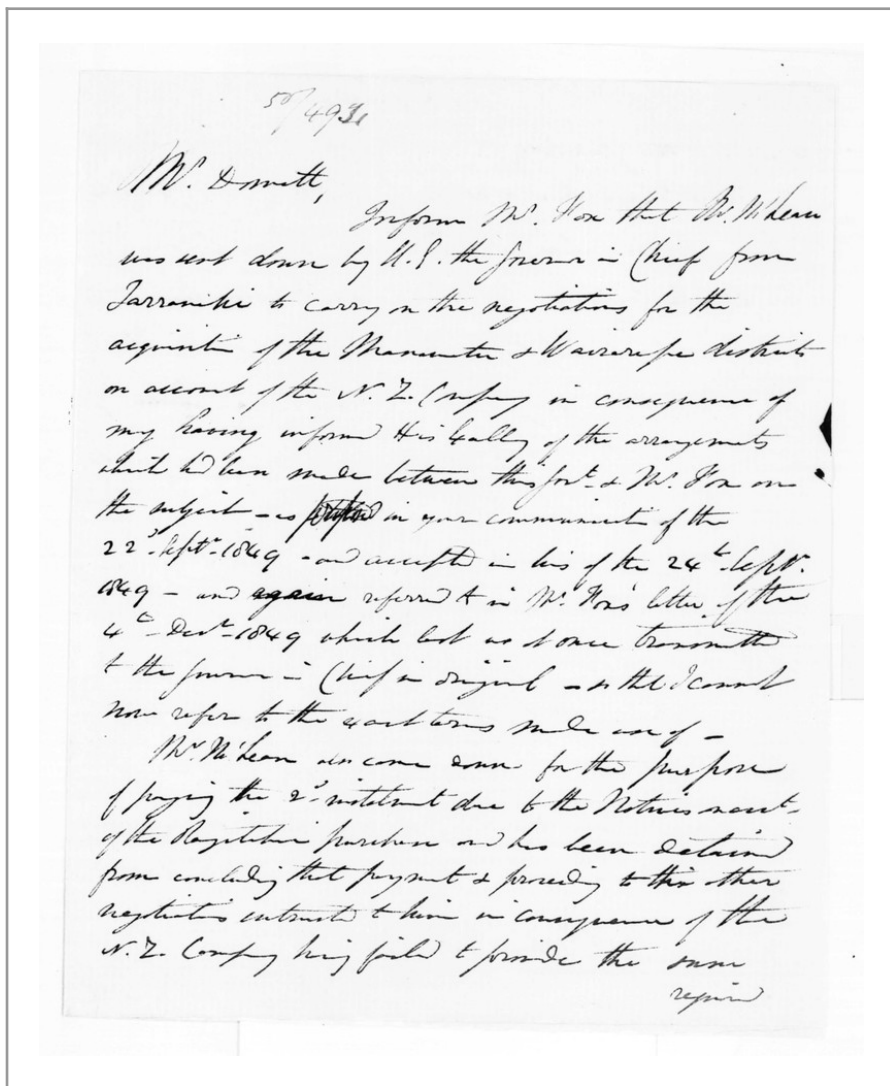 50/493
Mr. Domett,
Inform Mr. Fox that Mr. McLean
was sent down by H. E. the Governor in Chief from
Tarraniki to carry on the negotiations for the
acquisition of the Manawatu & Wairarapa districts
on account of the N. Z. Company in consequence of
my having informed His Excelly of the arrangements
which had been made between this Govt. & Mr. Fox on
the subject - as in your communication of the
22d. Septr. 1849 - and accepted in his of the 24th. Septr.
1849 - and again referred to in Mr. Fox's letter of the
4th. Decr. 1849 which last was at once transmitted
to the Governor in Chief in original - so that I cannot
now refer to the exact terms made use of -
Mr. McLean also came down for the purpose
of paying the 2d. instalment due to the Natives on acct.
of the Rangitikei purchase and has been detained
from concluding that payment & proceeding to the other
negotiations entrusted to him in consequence of the
N. Z. Company having failed to provide the sum
required